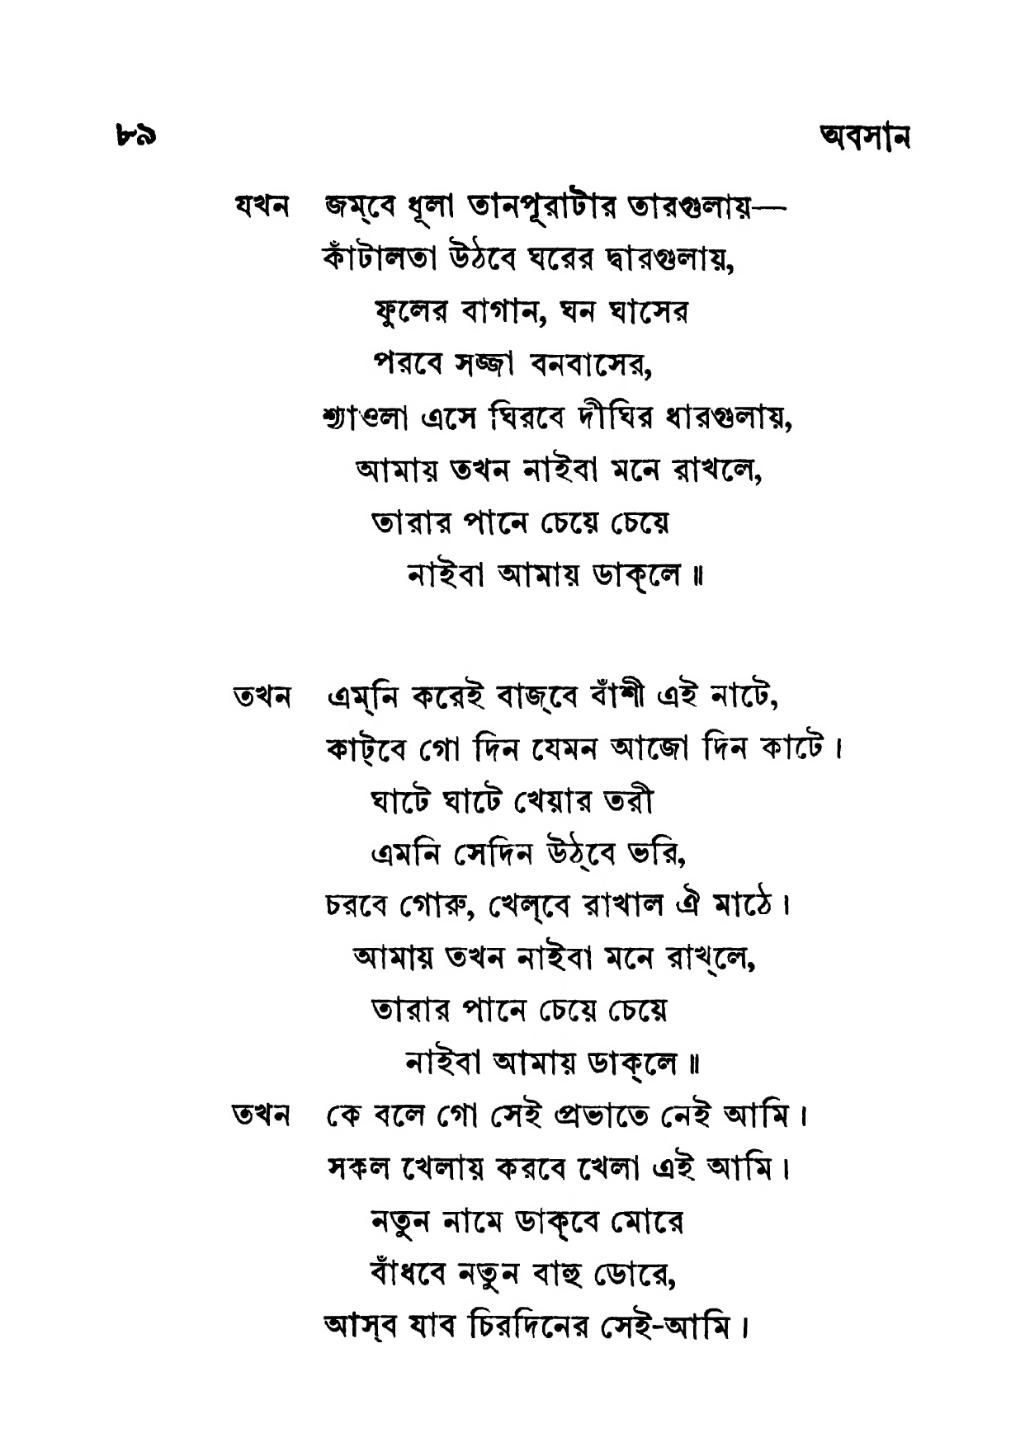 ৮৯ অবসান
যখন জম্‌বে ধূলা তানপূরাটার তারগুলায়—
কাঁটালতা উঠবে ঘরের দ্বারগুলায়,
ফুলের বাগান, ঘন ঘাসের
পরবে সজ্জা বনবাসের,
শ্যাওলা এসে ঘিরবে দীঘির ধারগুলায়,
আমায় তখন নাইবা মনে রাখলে,
তারার পানে চেয়ে চেয়ে
নাইবা আমায় ডাক্‌লে॥
তখন এম্‌নি করেই বাজ্‌বে বাঁশী এই নাটে,
কাট্‌বে গো দিন যেমন আজো দিন কাটে।
ঘাটে ঘাটে খেয়ার তরী
এমনি সেদিন উঠ্‌বে ভরি,
চরবে গোরু, খেল্‌বে রাখাল ঐ মাঠে।
আমায় তখন নাইবা মনে রাখ্‌লে,
তারার পানে চেয়ে চেয়ে
নাইবা আমায় ডাক্‌লে॥
তখন কে বলে গো সেই প্রভাতে নেই আমি।
সকল খেলায় করবে খেলা এই আমি।
নতুন নামে ডাক্‌বে মোরে
বাঁধবে নতুন বাহু ডোরে,
আস্‌ব যাব চিরদিনের সেই-আমি।